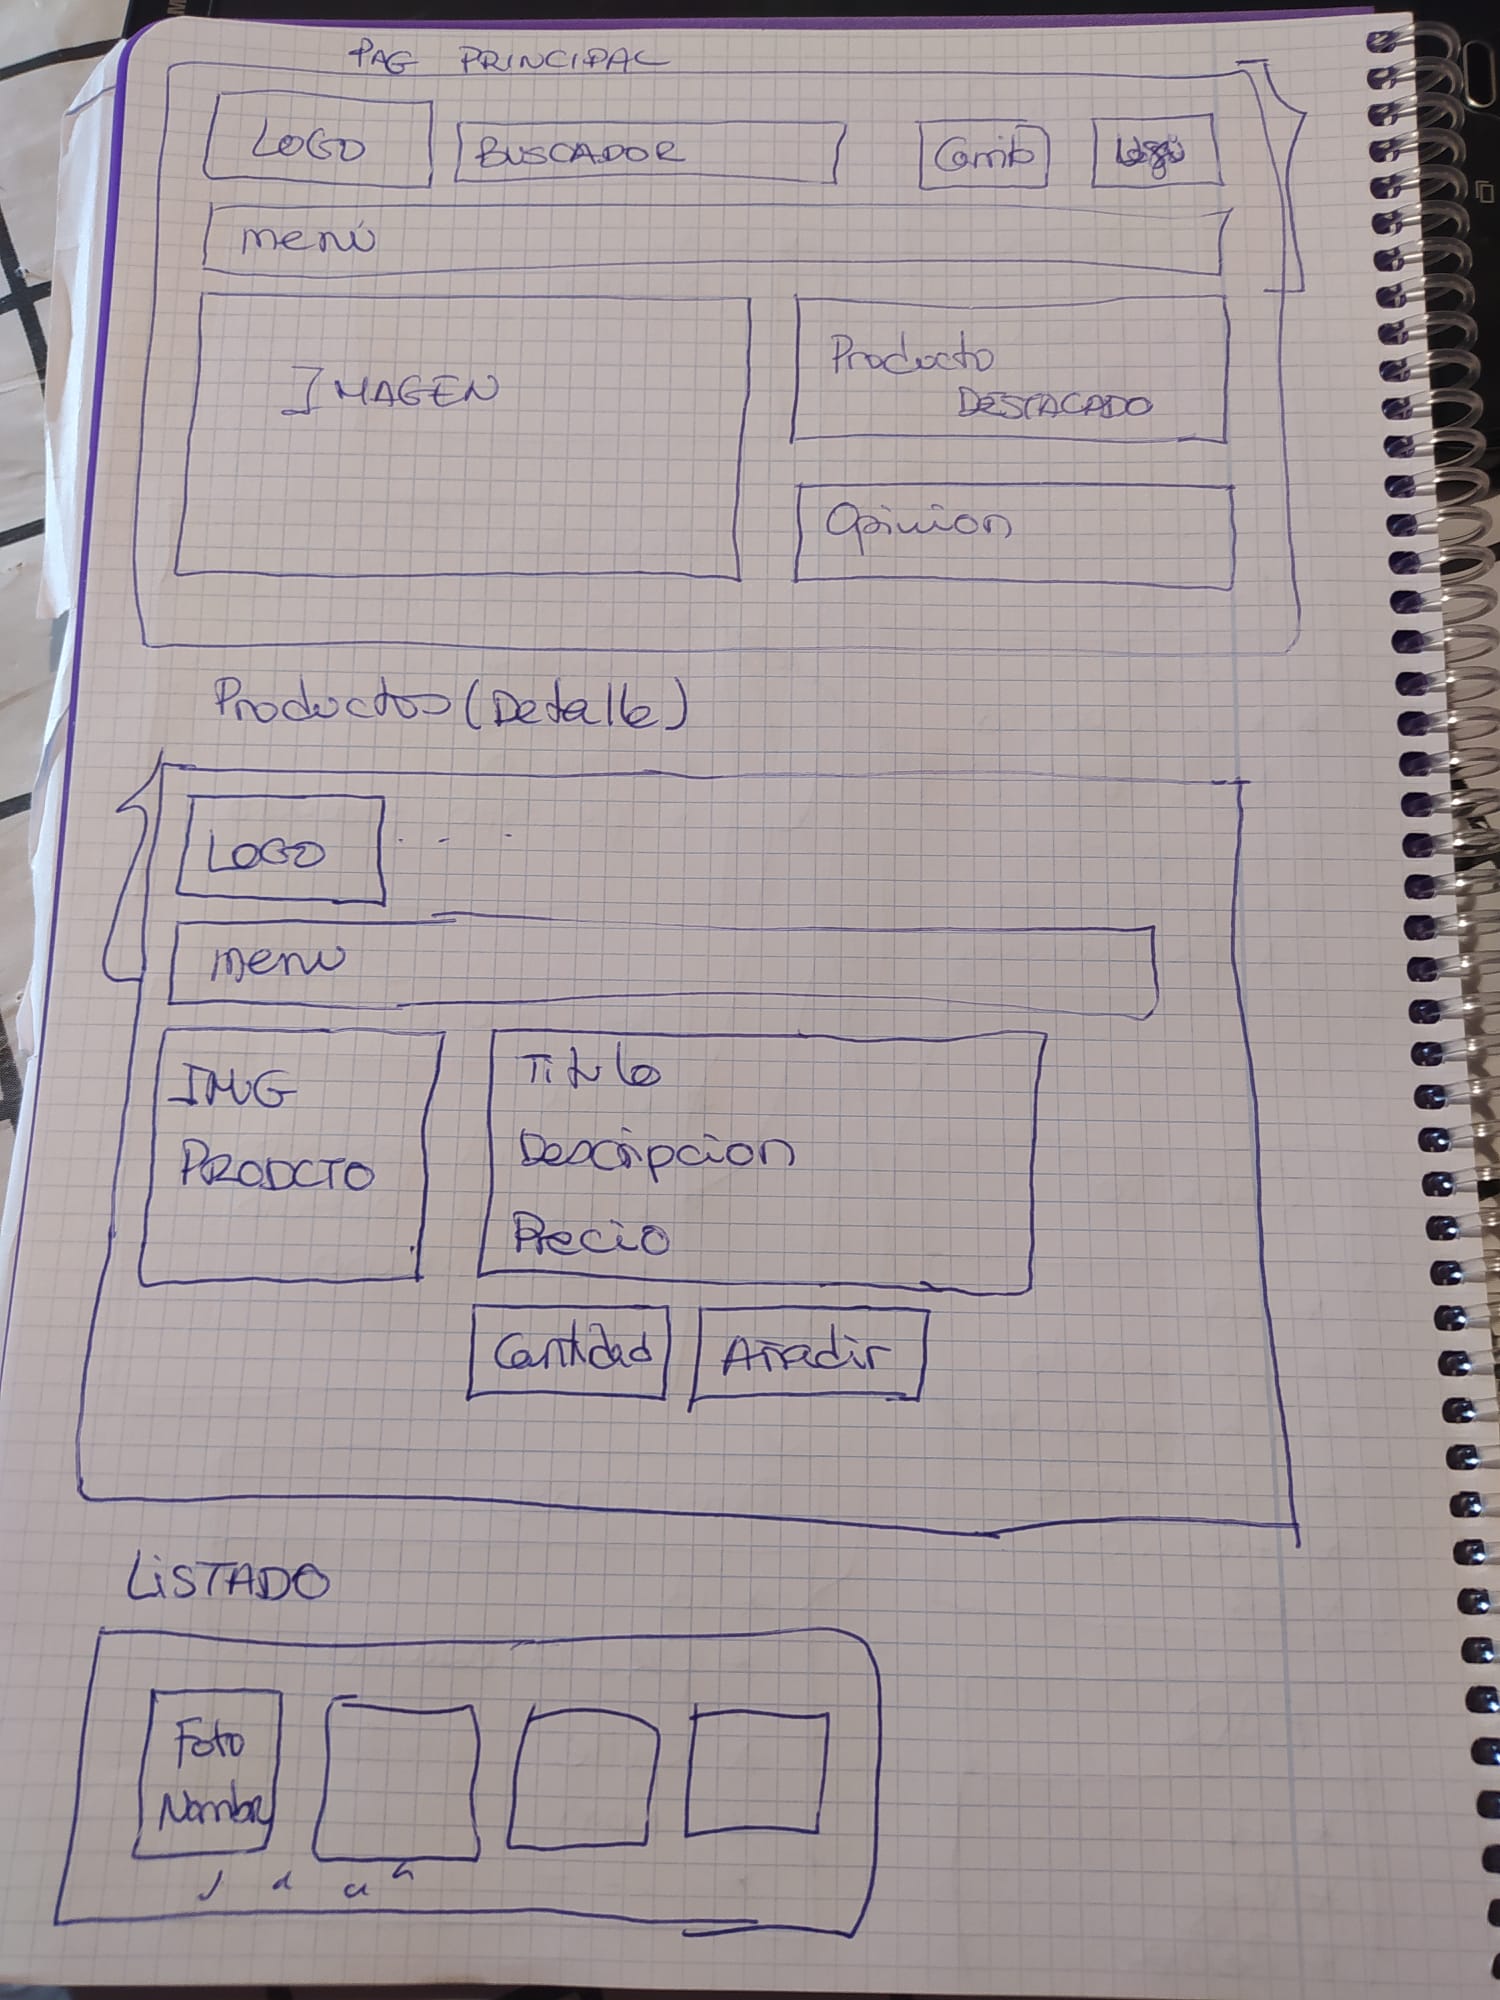 PAG PRINCIPAL
LOGO
BUSCADOR
Carrito
Login
menú
IMAGEN
Producto
DESTACADO
Opinion
Productos (Detalle)
LOGO . - .
menu
IMG
PRODCTO
Titulo
Descripcion
Precio
Cantidad
Añadir
LiSTADO
Foto
Nombre